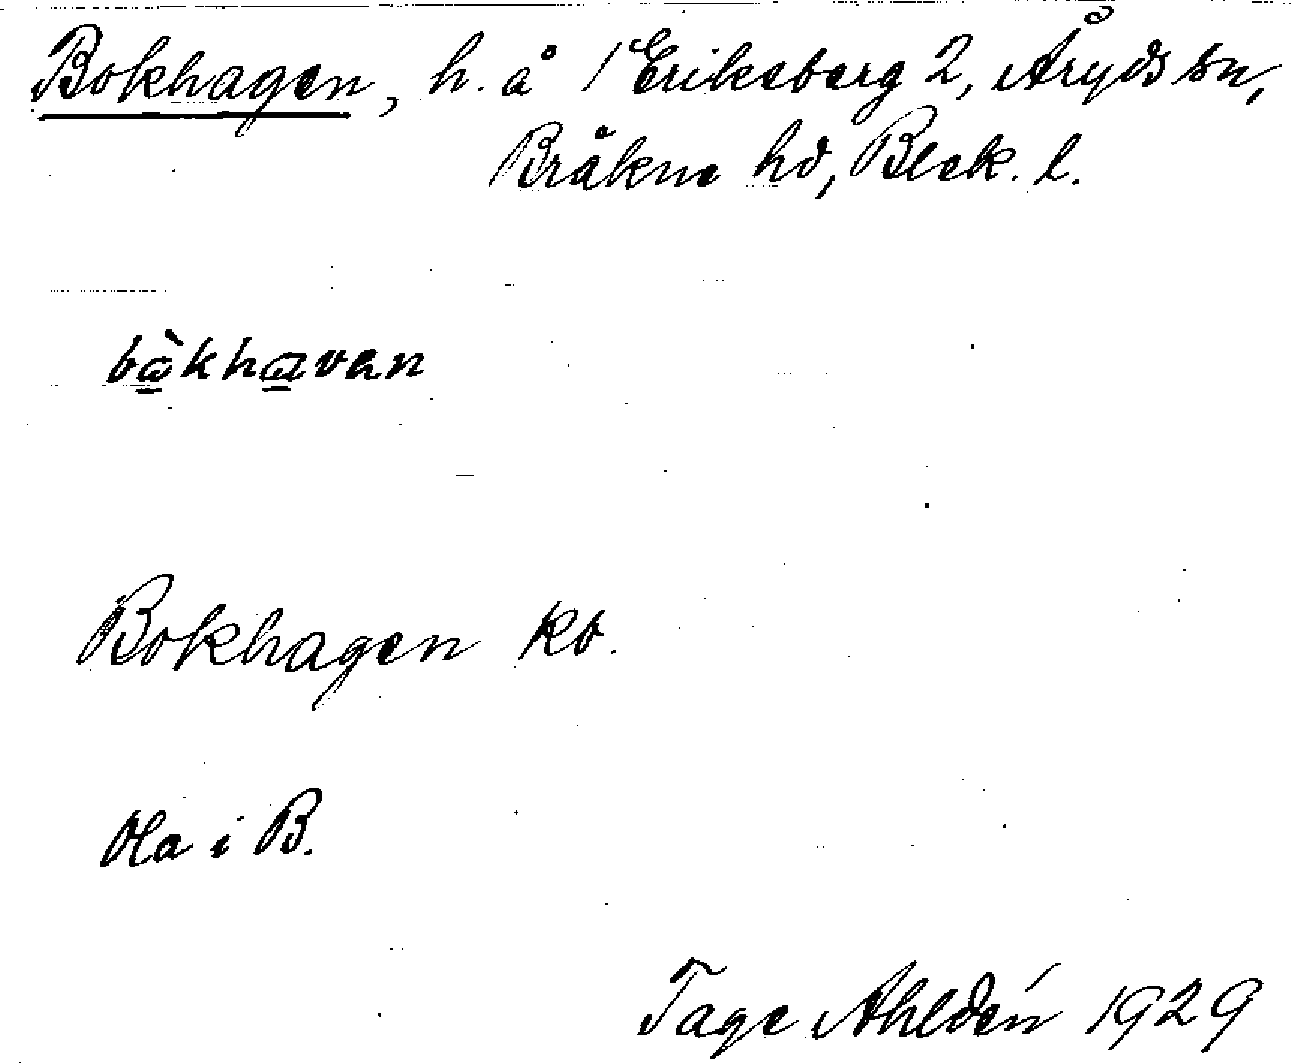 Bokhagen, h. å 1 Eriksberg 2, Åryds sn,
Bräkne hd, Blek. l.
bòkhavan
Bokhagen kb.
Ola i B.
Tage Ahldén 1929